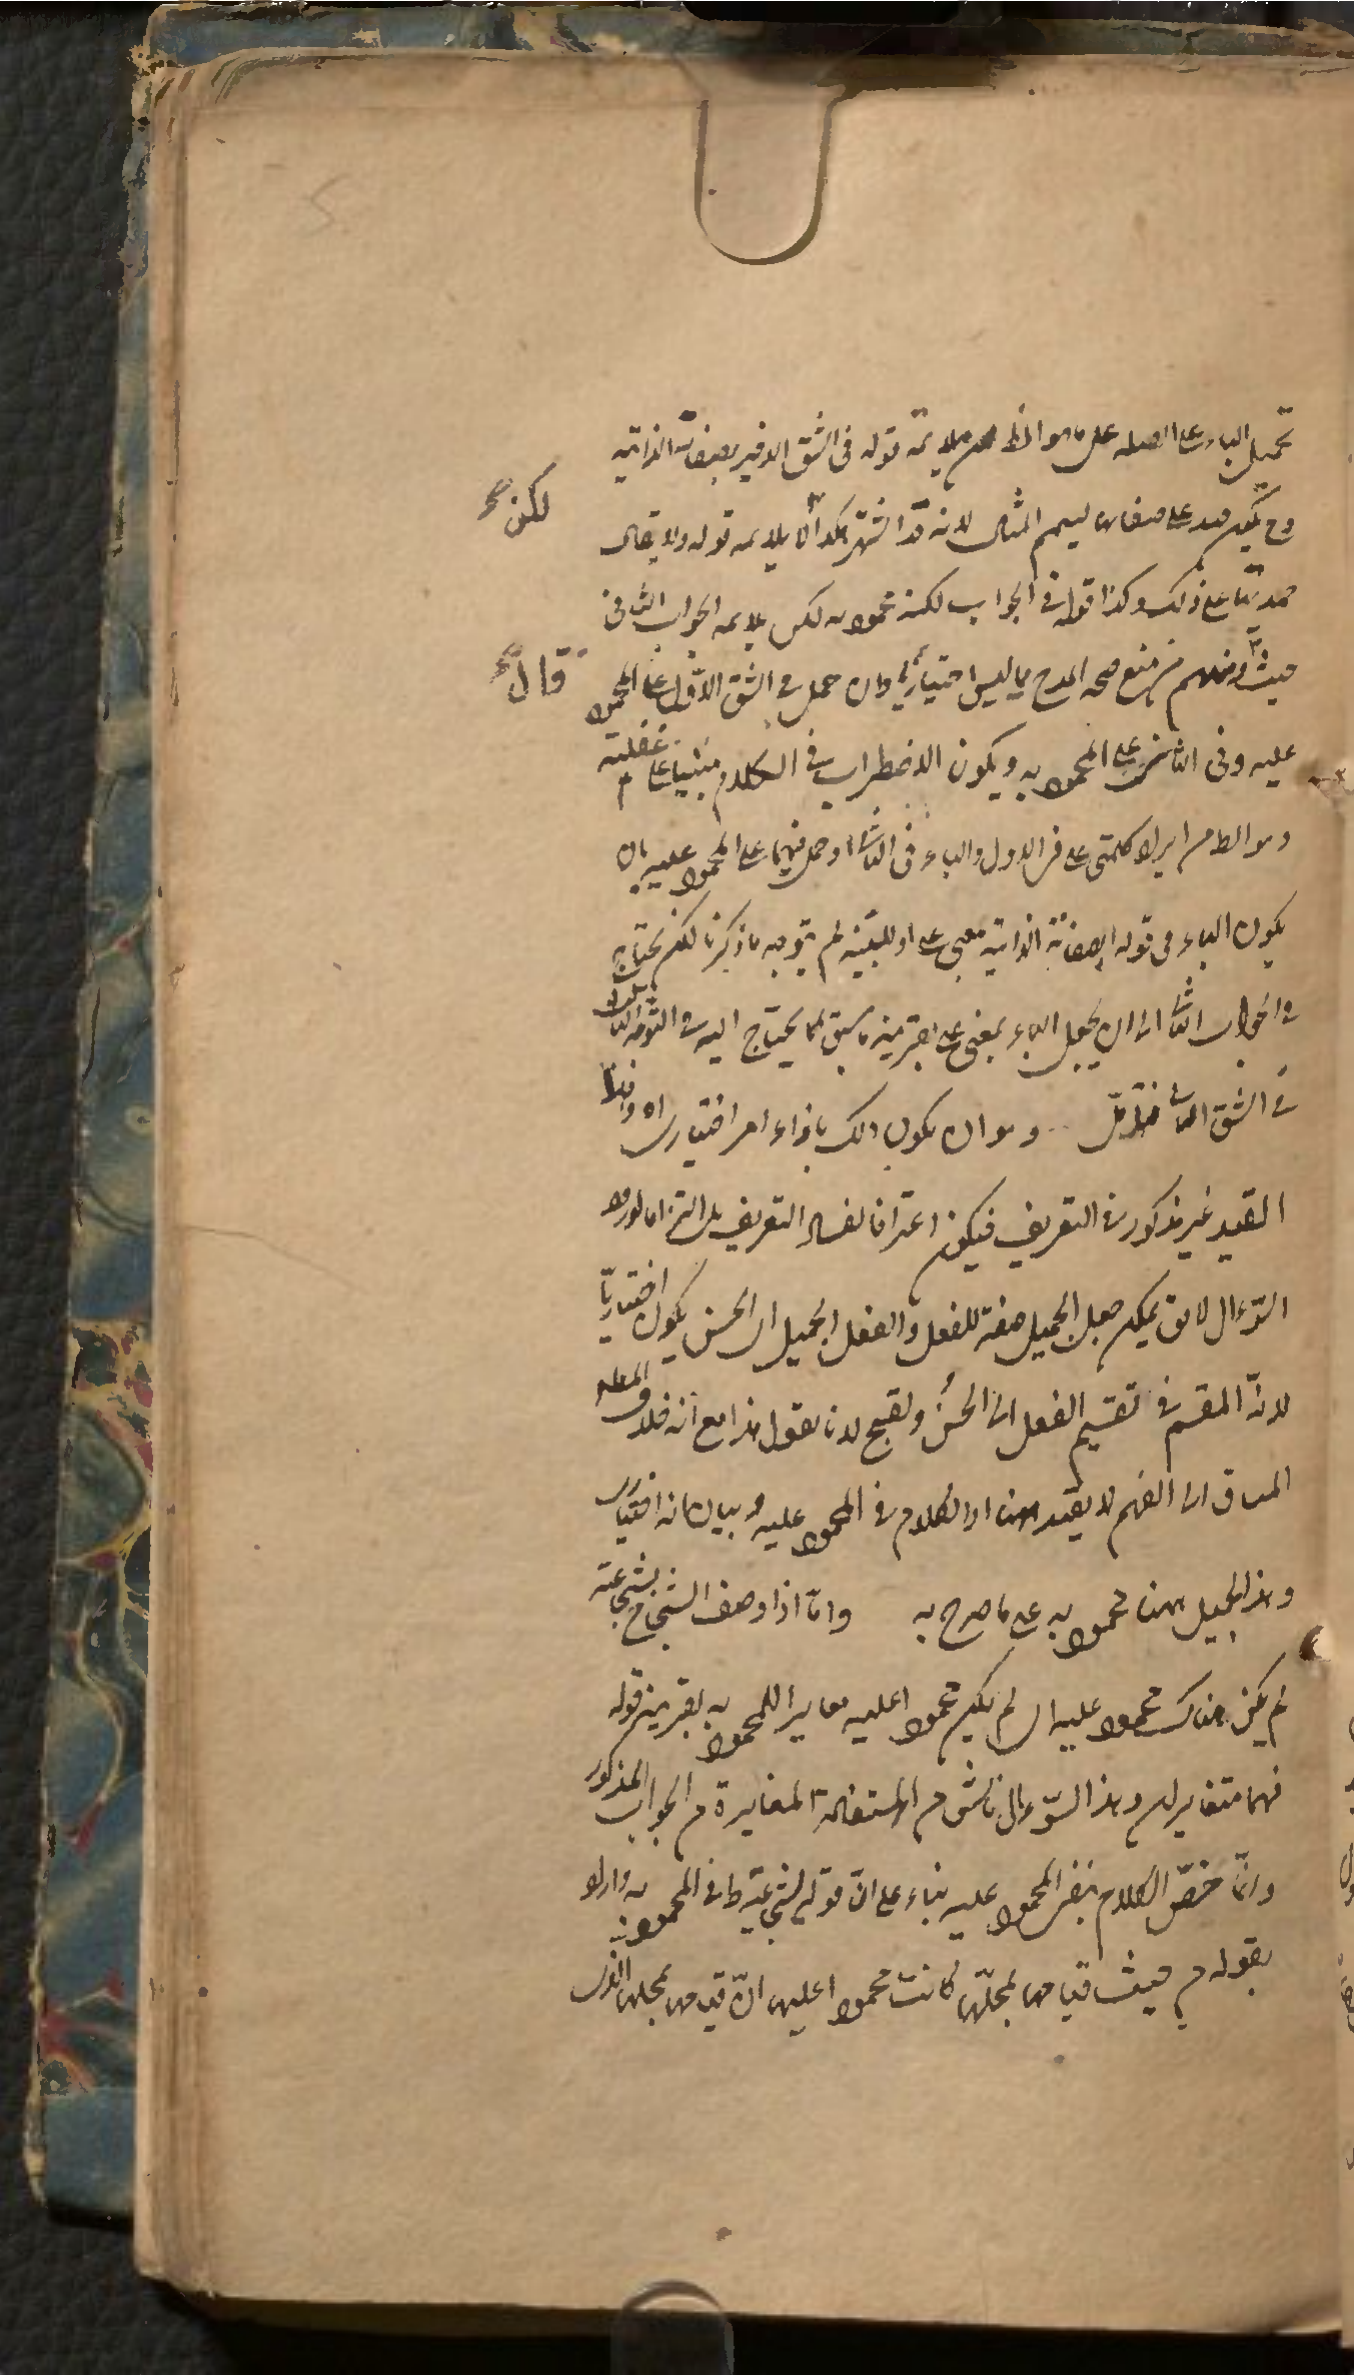 تحمل الباء على الصلة على ما هو الظ يلايمه قوله في الشق الاخير بصفاته الذاتية
لكن صح
وح يكون حمد على صفاتها ليتم المثال لانه قد اشتهر يلايمه قوله ولا يقال
حمدتها على ذلك وكذا قوله في الجواب لكنه محمود به لكن يلايمه الجواب الثاني
حيث قال ومنهم من منع صحة المدح بما ليس اختياريا وان حمل في الشق الاول على المحمود
قال صح
عليه وفى الثاني على المحمود به ويكون الاضطراب في الكلام مبنيا على غفلته
وهو الظ من ايراد كلمتى على في الاول والباء فى الثاني او حمل فيهما على المحمود عليه بان
يكون الباء في قوله بصفاته الذاتية بمعنى على او للسببية لم يتوجه ما ذكرنا لكنه يحتاج
في الجواب الثاني الى ان يجعل الباء بمعنى على بقرينة ما سبق كما يحتاج اليه في التوجيه الثاني
في الشق الثاني وهو ان يكون ذلك بازاء امر اختياري اه وهذا
القيد غير مذكور في التعريف فيكون اعترافا لفساد التعريف بل التزاما لورود
السؤال لا يق يمكن جعل الجميل صفة للفعل والفعل الجميل اى الحسن يكون اختياريا
لانه المقسم في تقسيم الفعل الى الحسن والقبيح لانا نقول هذا مع انه خلاف
المساق الى الفهم لا يفيد هنا اذ الكلام في المحمود عليه وبيان انه اختيارى
وهذا الجميل ههنا محمود به على ما صرح به وامّا اذا وصف الشجاع بشجاعته
لم يكن هناك محمود عليه اى لم يكن محمودا عليه مغايرا للمحمود به بقرينة قوله
فهما متغايران وهذا السؤال ناش من استفادة المغايرة من الجواب المذكور
وانما خصّ الكلام بنفى المحمود عليه بناء على ان قوله بشجاعته ظ في المحمود به واراد
بقوله من حيث قيامها بمحلها كانت محمودا عليها ان قيامها بمحلها الذى